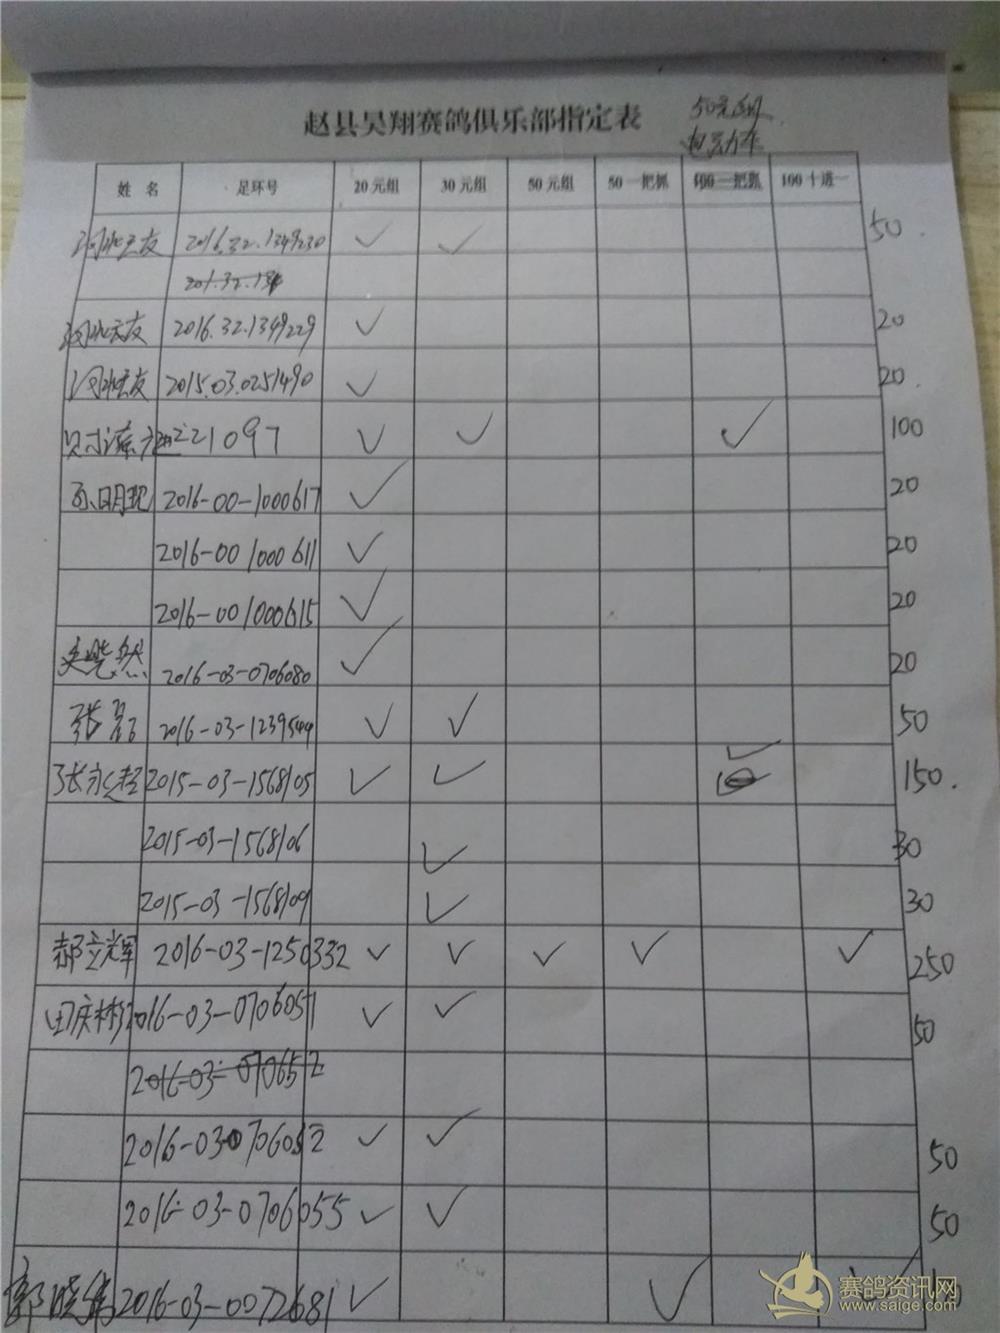 赵县昊翔赛鸽俱乐部指定表
50元组
姓 名 足环号 20元组 30元组 50元组 50一把抓 100一把抓 100十进一
2016.32.1349230 ✓ ✓ 50
201.32.134
2016.32.1349229 ✓ 20
2015.03.0251490 ✓ 20
221097 ✓ ✓ ✓ 100
2016-00-1000617 ✓ 20
2016-00 1000611 ✓ 20
2016-001000615 ✓ 20
吴晓然 2016-03-0706080 ✓ 20
张磊 2016-03-1239544 ✓ ✓ 50
张永超 2015-03-1568105 ✓ ✓ ✓ 150
2015-03-1568106 ✓ 30
2015-03-1568109 ✓ 30
郝立辉 2016-03-1250332 ✓ ✓ ✓ ✓ ✓ 250
田庆彬 2016-03-0706051 ✓ ✓ 50
2016-03-070652
2016-03-0706052 ✓ ✓ 50
2016-03-0706055 ✓ ✓ 50
郭晓伟 2016-03-0072681 ✓ ✓ ✓
赛鸽资讯网
www.saige.com